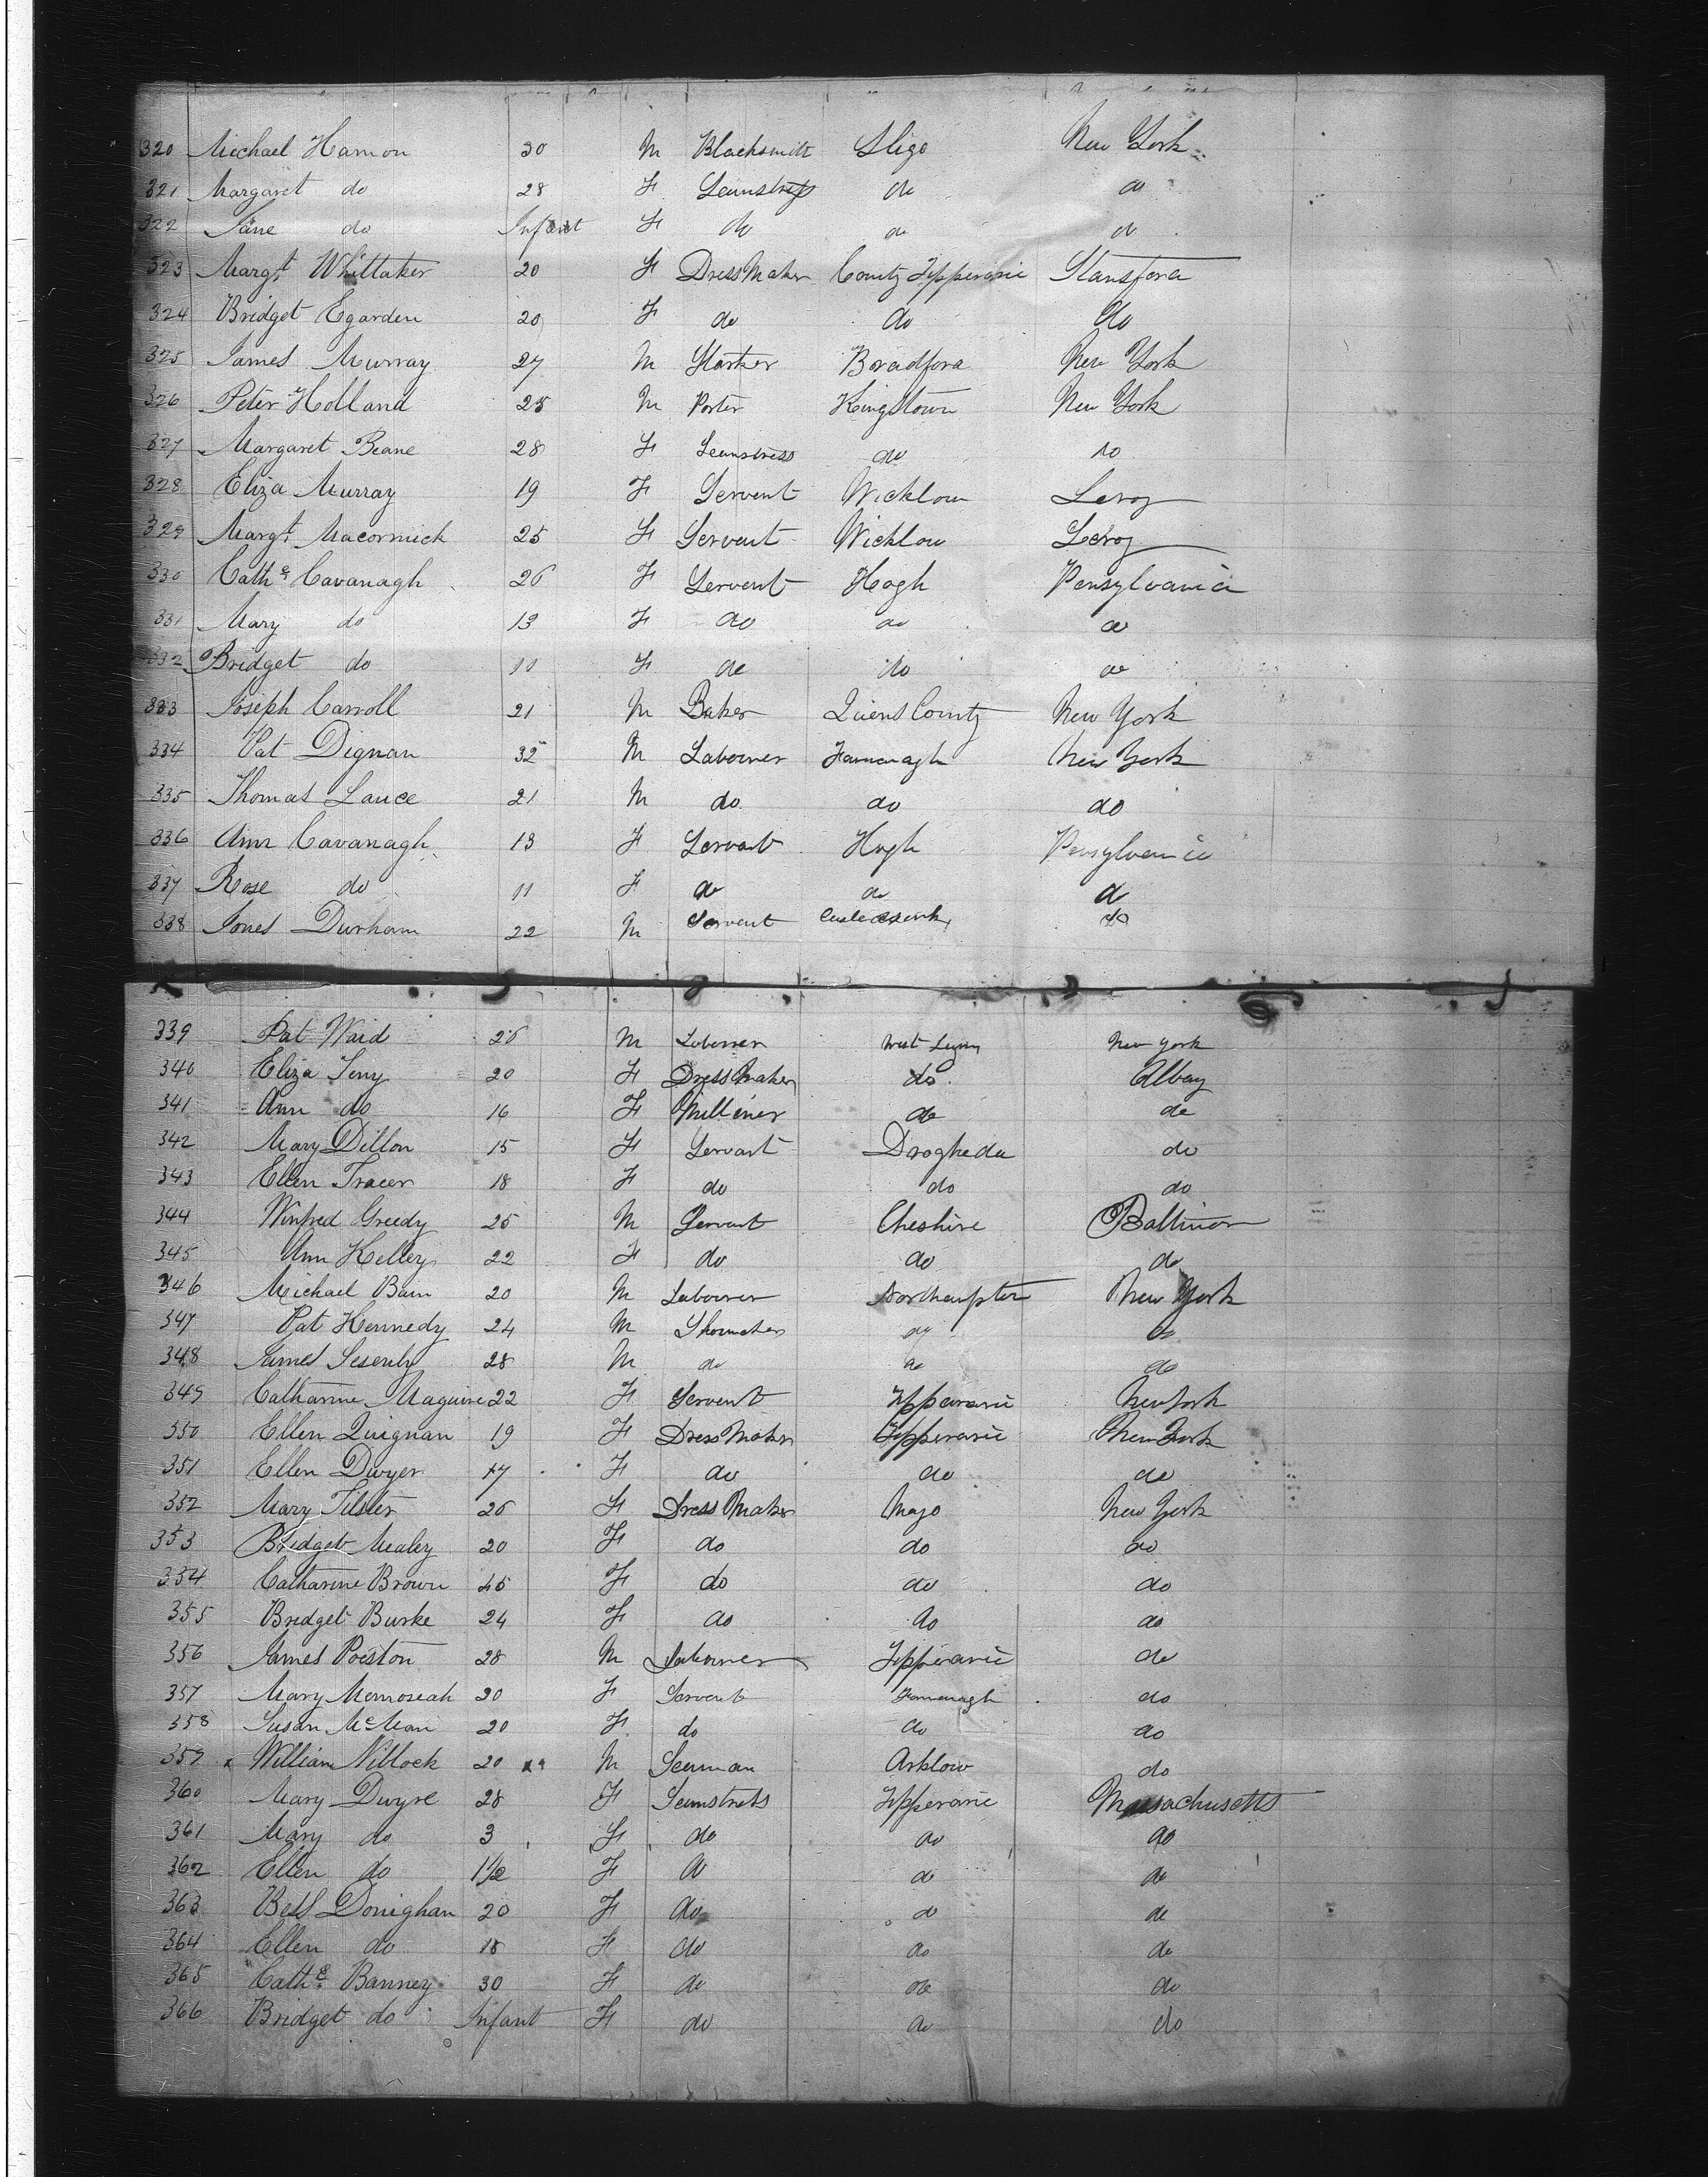 320 Michael Hamon 30 M Blacksmith Sligo New York
321 Margaret do 28 F Seamstress do do
322 Jane do Infant F do do do
323 Margt Whittaker 20 F Dress Maker County Tipperarie Stansford
324 Bridget Egarden 20 F do do do
325 James Murray 27 M Bradford New York
326 Peter Holland 25 M Porter Kingstown New York
327 Margaret Beane 28 F Seamstress do do
328 Eliza Murray 19 F Servent Wicklow Leroy
329 Margt Macormick 25 F Servent Wicklow Leroy
330 Cathe Cavanagh 26 F Servent Hogh Pensylvania
331 Mary do 13 F do do do
332 Bridget do 10 F do do do
333 Joseph Carroll 21 M Baker Quens County New York
334 Pat Dignan 32 M Labourer Famanagh New York
335 Thomas Lance 21 M do do do
336 Ann Cavanagh 13 F Servant Hugh Pensylvania
337 Rose do 11 F do do do
338 Jones Durham 22 M Servent do
339 Pat Ward M Labourer West New York
340 Eliza 20 F Dress Maker do Albay
341 Ann do 16 F Milliner do do
342 Mary Dillon 15 F Servant Drogheda do
343 Ellen Tracer 18 F do do do
344 Winfred Greedy 25 M Servant Cheshire Baltimor
345 Ann Kelley 22 F do do do
346 Michael Bain 20 M Labourer Northampton New York
347 Pat Kennedy 24 M Shoemaker do do
348 James 28 M do do do
349 Catharine Maguire 22 F Servent Tipperarie New York
350 Ellen Quignan 19 F Dress Maker Tipperarie New York
351 Ellen Dwyer 17 F do do do
352 Mary 26 F Dress Maker Mayo New York
353 Bridget Mealey 20 F do do do
354 Catharine Brown 45 F do do do
355 Bridget Burke 24 F do do do
356 James Poeston 28 M Labourer Tipperarie do
357 Mary F Servent Famanagh do
358 Susan McMan 20 F do do do
359 x William Niblock 20 M Seaman Arklow do
360 Mary Dwyre 28 F Seamstress Tipperarie Massachusetts
361 Mary do 3 F do do do
362 Ellen do 1½ F do do do
363 Bess Donighan 20 F do do do
364 Ellen do 18 F do do do
365 Cathe Banney 30 F do do do
366 Bridget do Infant F do do do